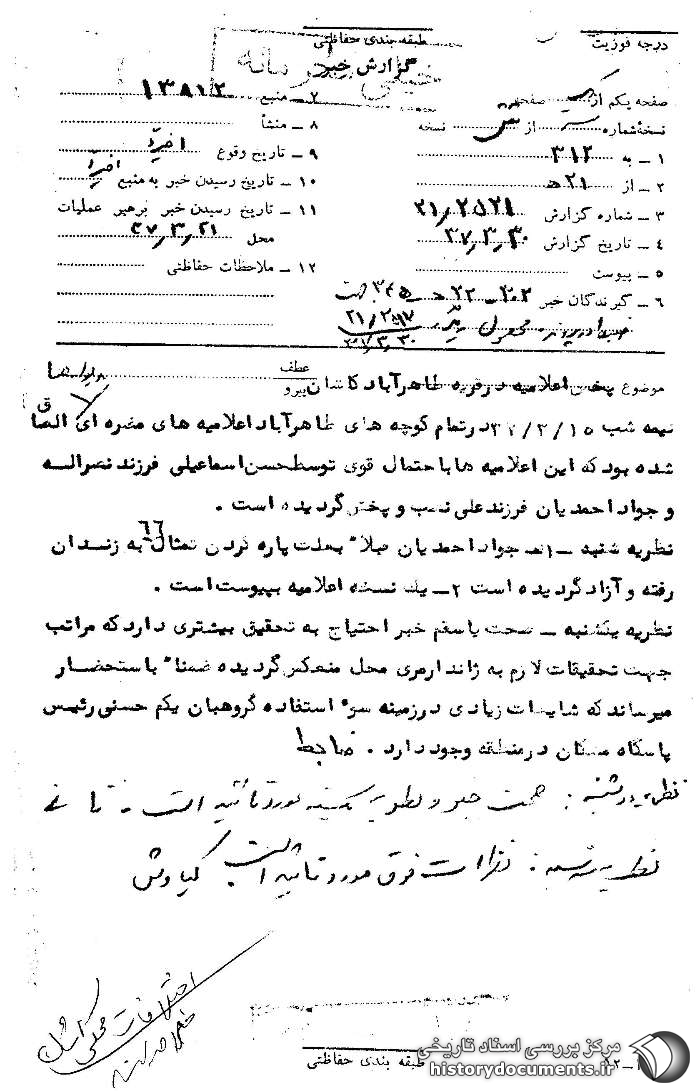 درجه فوزیت
طبقه بندی حفاظتی
گزارش خبر
خیلی محرمانه
صفحه یکم از یک صفحه
نسخهٔ شماره از نسخه
۱ ـ به ۳۱۲
۲ ـ از ۲۱ ه
۳ ـ شماره گزارش ۲۱/۲۵۲۱
۴ ـ تاریخ گزارش ۳۷/۳/۳۰
۵ ـ پیوست
۶ ـ گیرندگان خبر
۷ ـ منبع ۱۳۸۱۲
۸ ـ منشأ
۹ ـ تاریخ وقوع اخیراً
۱۰ ـ تاریخ رسیدن خبر به منبع اخیراً
۱۱ ـ تاریخ رسیدن خبر برهبر عملیات
محل ۳۷/۳/۲۱
۱۲ ـ ملاحظات حفاظتی
موضوع پخش اعلامیه در قریه طاهرآباد کاشان
عطف
پیرو
نیمه شب ۳۷/۳/۱۵ در تمام کوچه های طاهرآباد اعلامیه های مضره ای الصاق
شده بود که این اعلامیه ها با حتمال قوی توسط حسن اسماعیلی فرزند نصراله
و جواد احمدیان فرزند علی نصب و پخش گردیده است .
نظریه شنبه ـ ۱ـ جواد احمدیان قبلاً بعلت پاره کردن تمثال به زندان
رفته و آزاد گردیده است ۲ـ یك نسخه اعلامیه بپیوست است .
نظریه یکشنبه ـ صحت یا سقم خبر احتیاج به تحقیق بیشتری دارد که مراتب
جهت تحقیقات لازم به ژاندارمری محل منعکس گردیده ضمناً باستحضار
میرساند که شایعات زیادی در زمینه سوء استفاده گروهبان یکم حسنی رئیس
پاسگاه مشکان در منطقه وجود دارد . ضابط
نظریه دوشنبه : صحت خبر و نظریه یکشنبه مورد تأئید است .
نظریه سه شنبه : نظرات فوق مورد تأئید است کیاوش
اختلافات محلی
طبقه بندی حفاظتی
مرکز بررسی اسناد تاریخی
historydocuments.ir